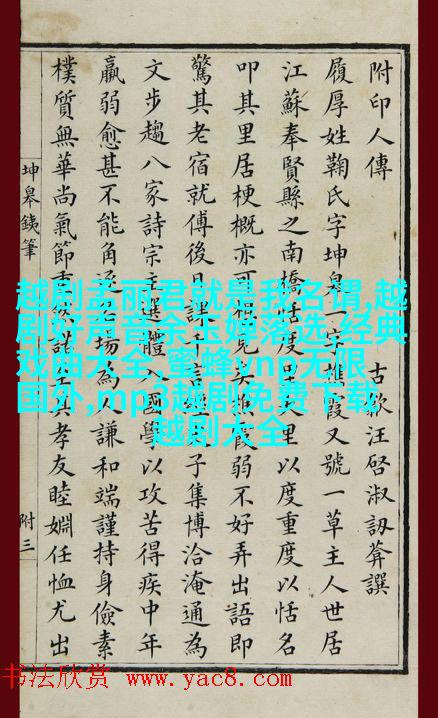 附印人傳
古歙汪啓淑訒葊譔
履厚姓鞠氏字坤皋一字樵霞又號一草主人世居
江蘇奉賢縣之南橋恬度里里以度重度以恬名
叩其里居梗概亦可想見矣霞弱不好弄出語即
驚其老宿就傅後日課千言經子集博洽淹通為
文步趨八家詩宗主選體入國學以攻苦得疾中年
羸弱愈甚不能角逐名場為人謙和端謹持身儉素
樸質無華尚氣節重然諾至其孝友睦婣任恤尤出
坤皋銕筆
附三
越剧孟丽君就是我名谓,越
剧好声音余玉婵落选,经典
戏曲大全,蜜蜂vnp无限
国外,mp3越剧免费下载,
越剧大全
书法欣赏 www.yac8.com